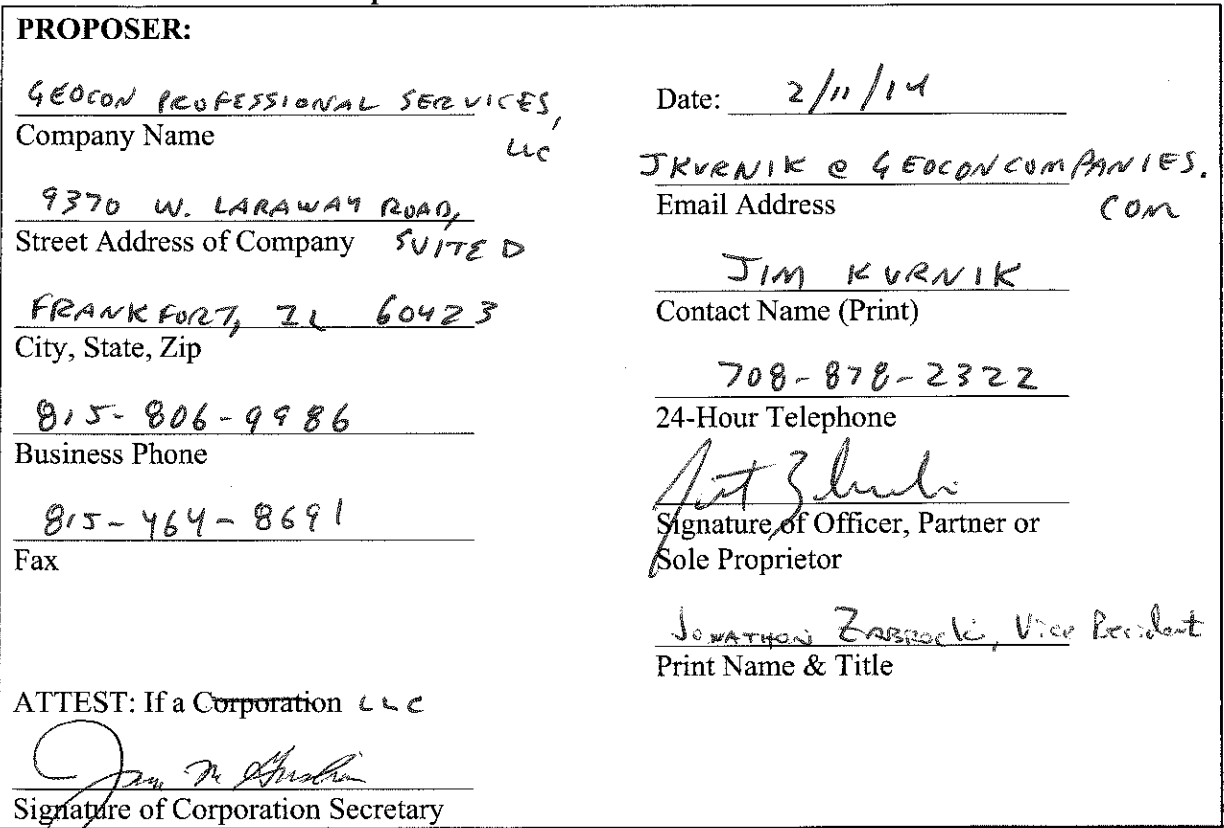 PROPOSER:
GEOCON PROFESSIONAL SERVICES,
LLC
Company Name
9370 W. LARAWAY ROAD,
SUITE D
Street Address of Company
FRANKFORT, IL 60423
City, State, Zip
815-806-9986
Business Phone
815-464-8691
Fax
ATTEST: If a Corporation LLC
Signature of Corporation Secretary
Date: 2/11/14
JKURNIK @ GEOCONCOMPANIES.
COM
Email Address
JIM KURNIK
Contact Name (Print)
708-878-2322
24-Hour Telephone
Signature of Officer, Partner or
Sole Proprietor
JONATHON ZABROCKI, Vice President
Print Name & Title